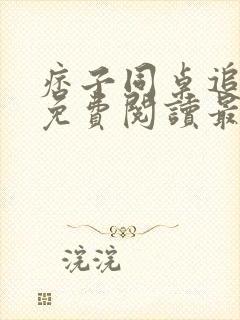 痞子同桌追
免費閱讀最
浣浣